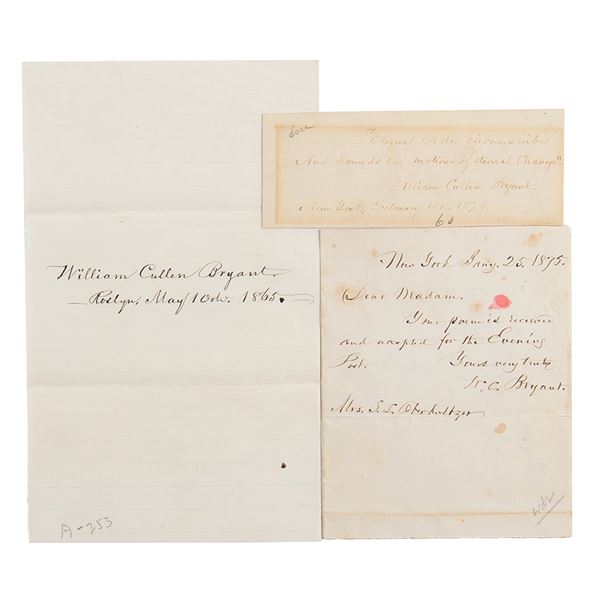 William Cullen Bryant.
Roslyn, May 10th. 1865.
A-253
"Eternal Order circumscribes
And bounds the motions of eternal Change".
William Cullen Bryant.
New York, February 1874.
60
New York Jany. 25. 1875.
Dear Madam.
Your poem is received
and accepted for the Evening
Post. Yours very truly
W. C. Bryant.
Mrs. S. L. Oberholtzer